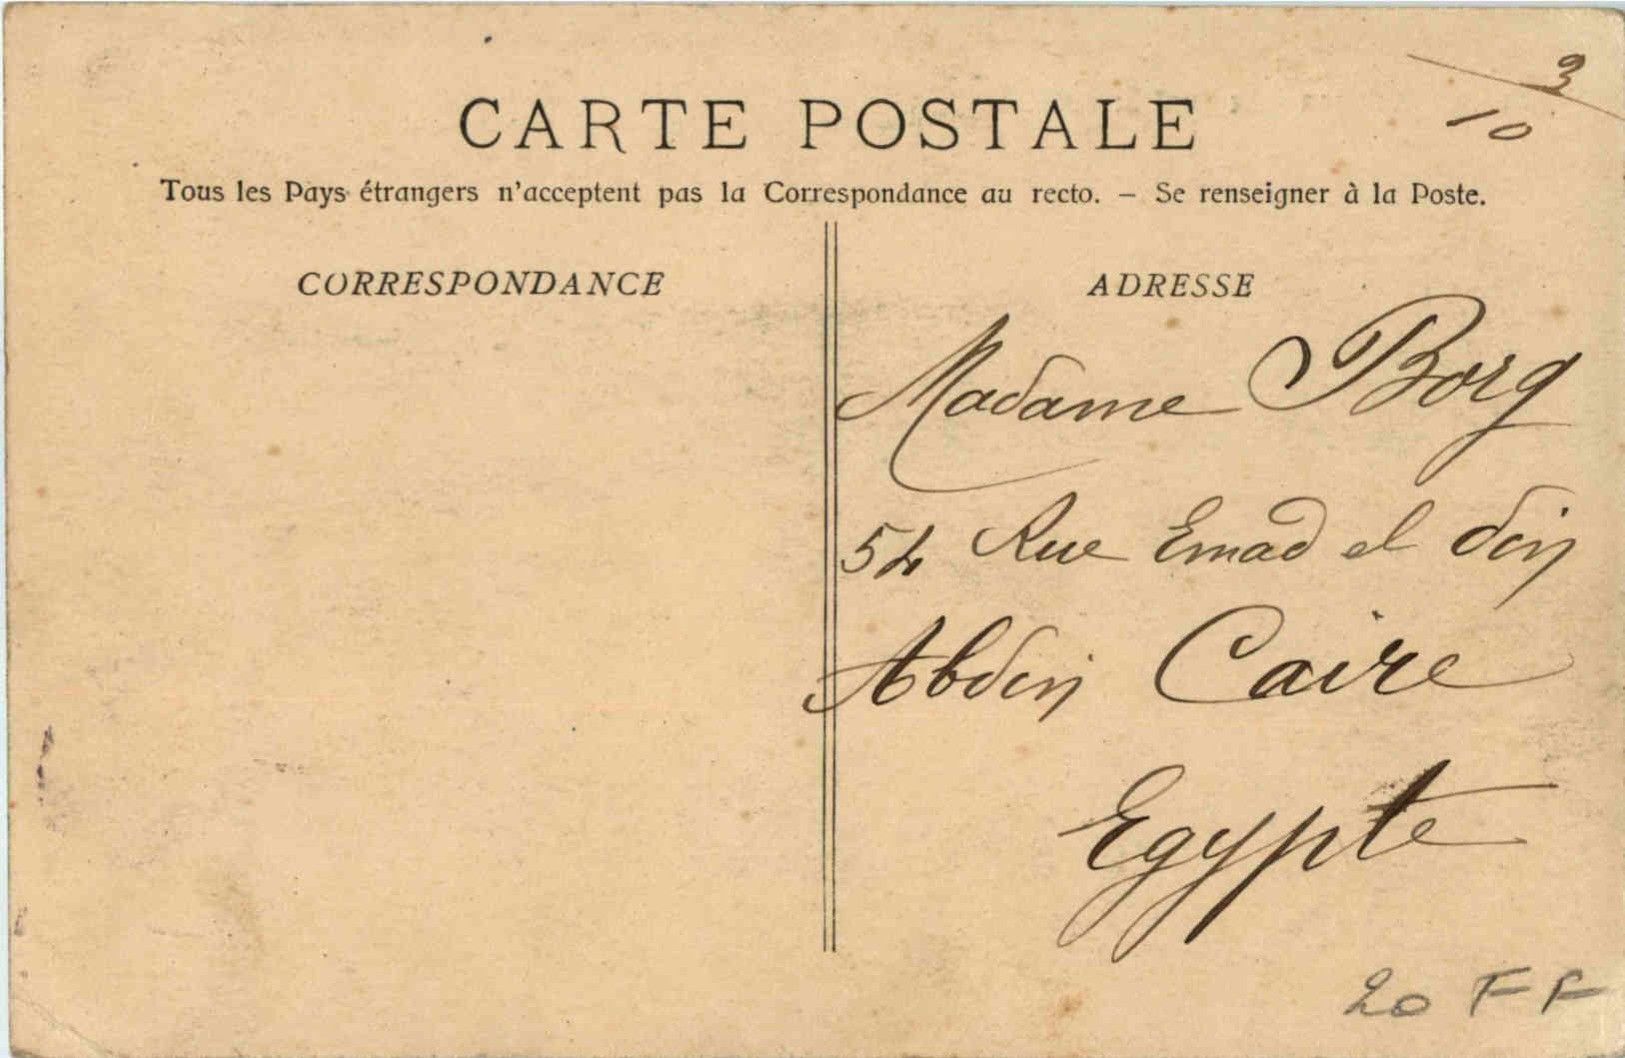 3
10
CARTE POSTALE
Tous les Pays étrangers n'acceptent pas la Correspondance au recto. — Se renseigner à la Poste.
CORRESPONDANCE
ADRESSE
Madame Borg
54 Rue Emad el din
Abdin Caire
Egypte
20 FF